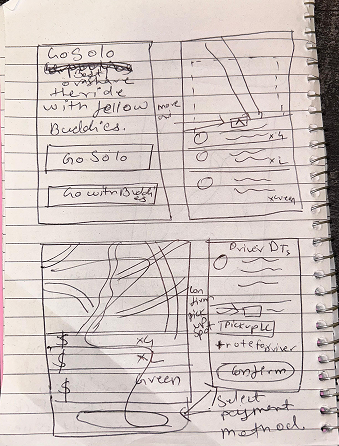 Go Solo
or share
the ride
with fellow
Buddies.
Go Solo
Go with Buddies
more
x4
XL
xGreen
x4
XL
Green
$
$
$
Confirm
pick
up
spot
Driver DTs
Pickup LC
+ note to Driver
Confirm
Select
payment
method.